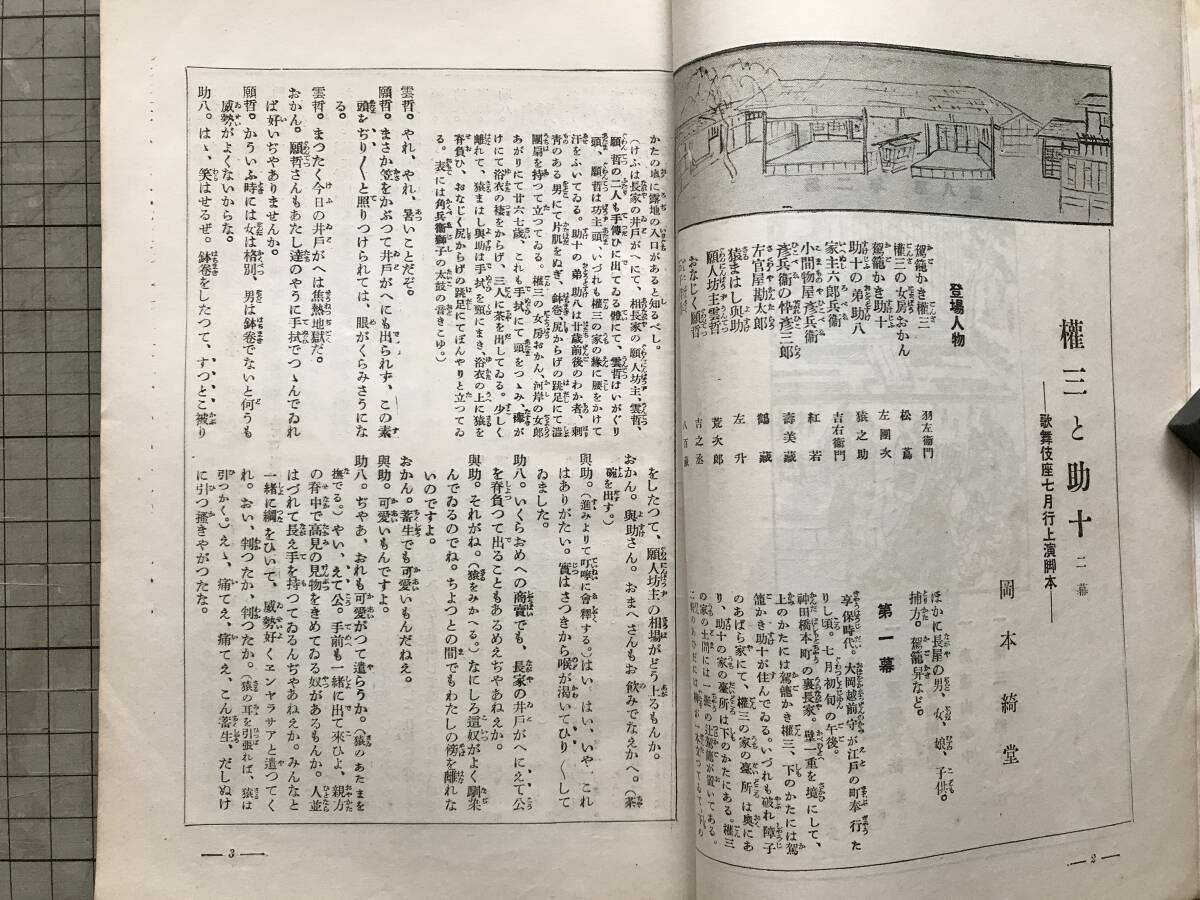 權三と助十 二幕
―歌舞伎座七月行上演脚本―
岡本綺堂
登場人物
駕籠かき權三
權三の女房おかん
駕籠かき助十
助十の弟助八
家主六郎兵衞
小間物屋彦兵衞
彦兵衞の忰彦三郎
左官屋勘太郎
猿まはし與助
願人坊主雲哲
おなじく願哲
羽左衞門
松蔦
左團次
猿之助
吉右衞門
紅若
壽美藏
鶴藏
左升
荒次郎
吉之丞
八百藏
ほかに長屋の男、女、娘、子供。
捕方。駕籠舁など。
第一幕
享保時代。大岡越前守が江戸の町奉行た
りし頃。七月初旬の午後。
神田橋本町の裏長家。壁一重を境にして、
上のかたには駕籠かき權三、下のかたには駕
籠かき助十が住んでゐる。いづれも破れ障子
のあばら家にて、權三の家の臺所は奧にあ
り、助十の家の臺所は下のかたにある。權三
の家の土間には一挺の辻駕籠が置いてある。
―2―
かたの端に露地の入口があると知るべし。
(けふは長家の井戸がへにて、相長家の願人坊主、雲哲、
願哲の二人も手傳ひに出てゐる體にて、雲哲はいがぐり
頭、願哲は坊主頭、いづれも權三の家の緣に腰をかけて
汗をふいてゐる。助十の弟助八は廿歳前後のわか者、刺
靑のある男にて片肌をぬぎ、鉢卷、尻からげの跣足にて澁
團扇を持つて立つてゐる。權三の女房おかん、河岸の女郎
あがりにて廿六七歳、これも手拭にて頭をつゝみ、襷が
けにて浴衣の褄をからげ、三人に茶を出してゐる。少しく
離れて、猿まはし與助は手拭を頸にまき、浴衣の上に猿を
脊負ひ、おなじく尻からげの跣足にてぼんやりと立つてゐ
る。表には角兵衞獅子の太鼓の音きこゆ。)
雲哲。やれ、やれ、暑いことだぞ。
願哲。まさか笠をかぶつて井戸がへにも出られず、この素
頭をぢり〳〵と照りつけられては、眼がくらみさうにな
る。
雲哲。まつたく今日の井戸がへは焦熱地獄だ。
おかん。願哲さんもあたし達のやうに手拭でつゝんでゐれ
ば好いぢやありませんか。
願哲。かういふ時には女は格別、男は鉢卷でないと何うも
威勢がよくないからな。
助八。はゝ、笑はせるぜ。鉢卷をしたつて、すつとこ被り
をしたつて、願人坊主の相場がどう上るもんか。
おかん。與助さん。おまへさんもお飮みでなえかへ。(茶
碗を出す。)
與助。(進みよりて叮嚀に會釋する。)はい、はい、いや、これ
はありがたい。實はさつきから喉が渴いてひり〳〵して
ゐました。
助八。いくらおめへの商賣でも、長家の井戸がへにえて公
を脊負つて出ることもあるめえぢやあねえか。
與助。それがね。(猿をみかへる。)なにしろ這奴がよく馴染
んでゐるのでね。ちよつとの間でもわたしの傍を離れな
いのですよ。
おかん。畜生でも可愛いもんだねえ。
與助。可愛いもんですよ。
助八。ぢやあ、おれも可愛がつて遣らうか。(猿のあたまを
撫でる。)やい、えて公。手前も一緒に出て來ひよ、親方
の脊中で高見の見物をきめてゐる奴があるもんか。人並
はづれて長え手を持つてゐるんぢやあねえか。みんなと
一緒に綱をひいて、威勢好くヱンヤラサアと遣つてく
れ。おい、判つたか、判つたか。(猿の耳を引張れば、猿は
引つかく。)えゝ、痛てえ、痛てえ、こん畜生、だしぬけ
に引つ搔きやがつたな。
―3―